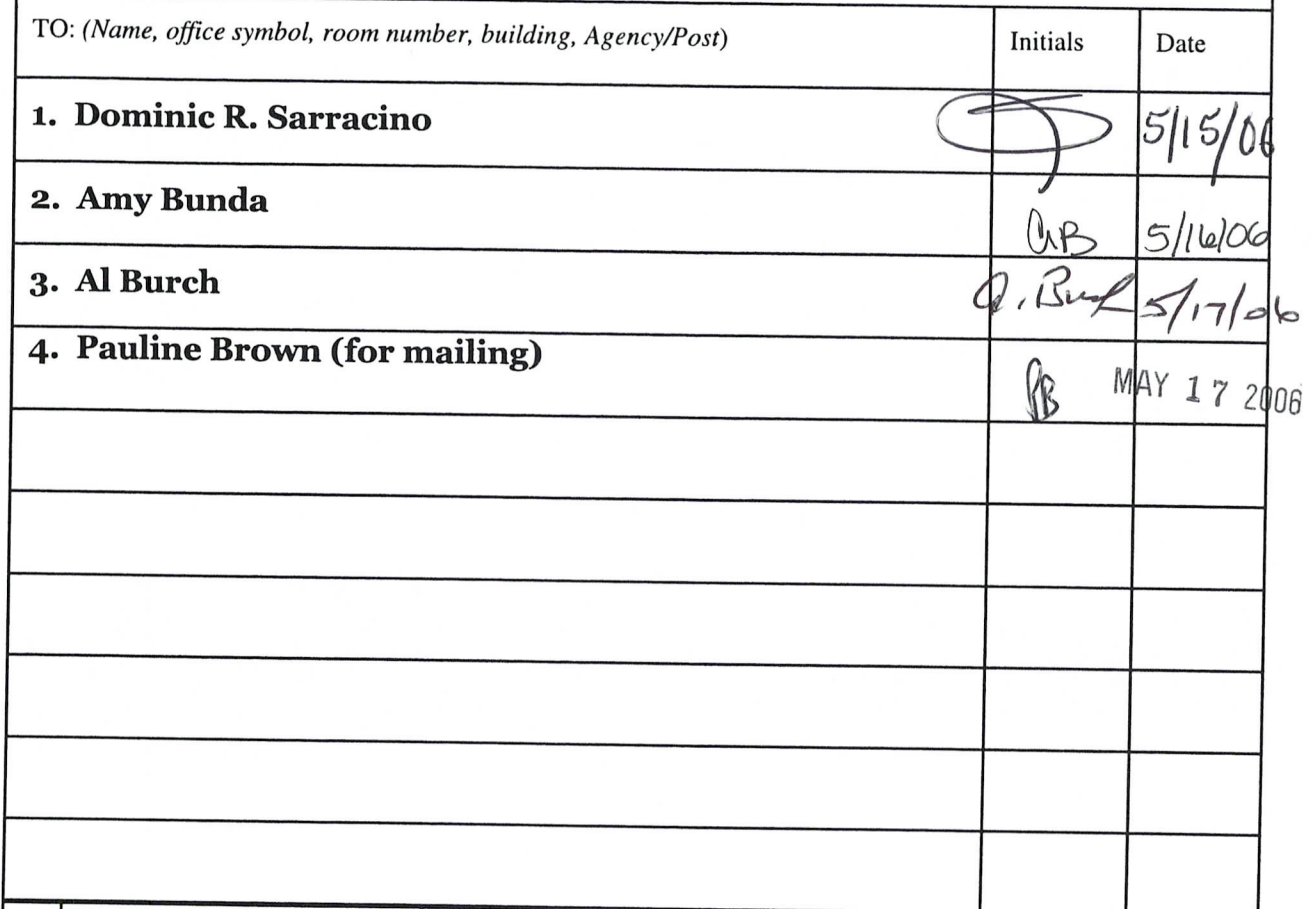 TO: (Name, office symbol, room number, building, Agency/Post) Initials Date
1. Dominic R. Sarracino 5/15/06
2. Amy Bunda AB 5/16/06
3. Al Burch A. Burch 5/17/06
4. Pauline Brown (for mailing) PB MAY 17 2006